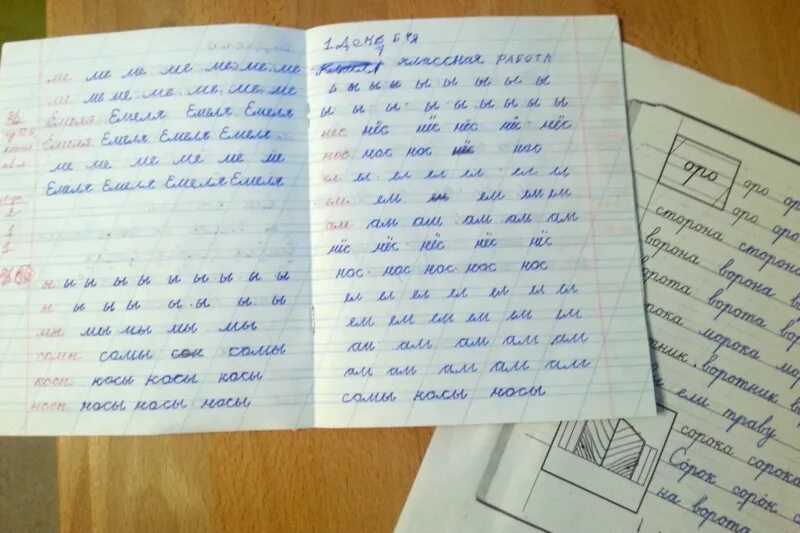 ме ме ме ме ме ме ме
ме ме ме ме ме ме ме
Емеля Емеля Емеля Емеля
Емеля Емеля Емеля Емеля
ме ме ме ме ме ме
Емеля Емеля Емеля Емеля
ы ы ы ы ы ы ы ы ы ы
ы ы ы ы ы ы ы ы
мы мы мы мы мы
сомы сомы сомы
косы косы косы косы
носы носы носы носы
1 Декабря
классная РАБОТА
ы ы ы ы ы ы ы ы ы
ы ы ы ы ы ы ы ы ы
нёс нёс нёс нёс нёс нёс
нос нос нос нос
ел ел ел ел ел ел ел
ем ем ем ем ем
ам ам ам ам ам ам
нёс нёс нёс нёс нёс
нос нос нос нос нос
ел ел ел ел ел ел ел
ем ем ем ем ем ем
ам ам ам ам ам
ам ам ам ам ам ам
сомы косы носы
оро оро
оро оро
сторона
ворона ворона
ворота
морока
воротник
ели траву
сорока сорока
Сорок сорок
на ворота